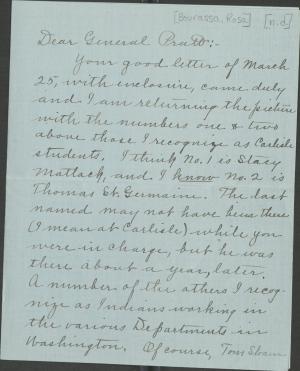 [Bourassa, Rosa] [n.d]
Dear General Pratt:-
Your good letter of March
25, with inclosure, came duly
and I am returning the picture
with the numbers one & two
above those I recognize as Carlisle
students. I think No. 1 is Stacy
Matlack, and I know No. 2 is
Thomas St. Germaine. The last
named may not have been there
(I mean at Carlisle) while you
were in charge, but he was
there about a year, later.
A number of the others I recog-
nize as Indians working in
the various Departments in
Washington. Of course, Tom Sloan